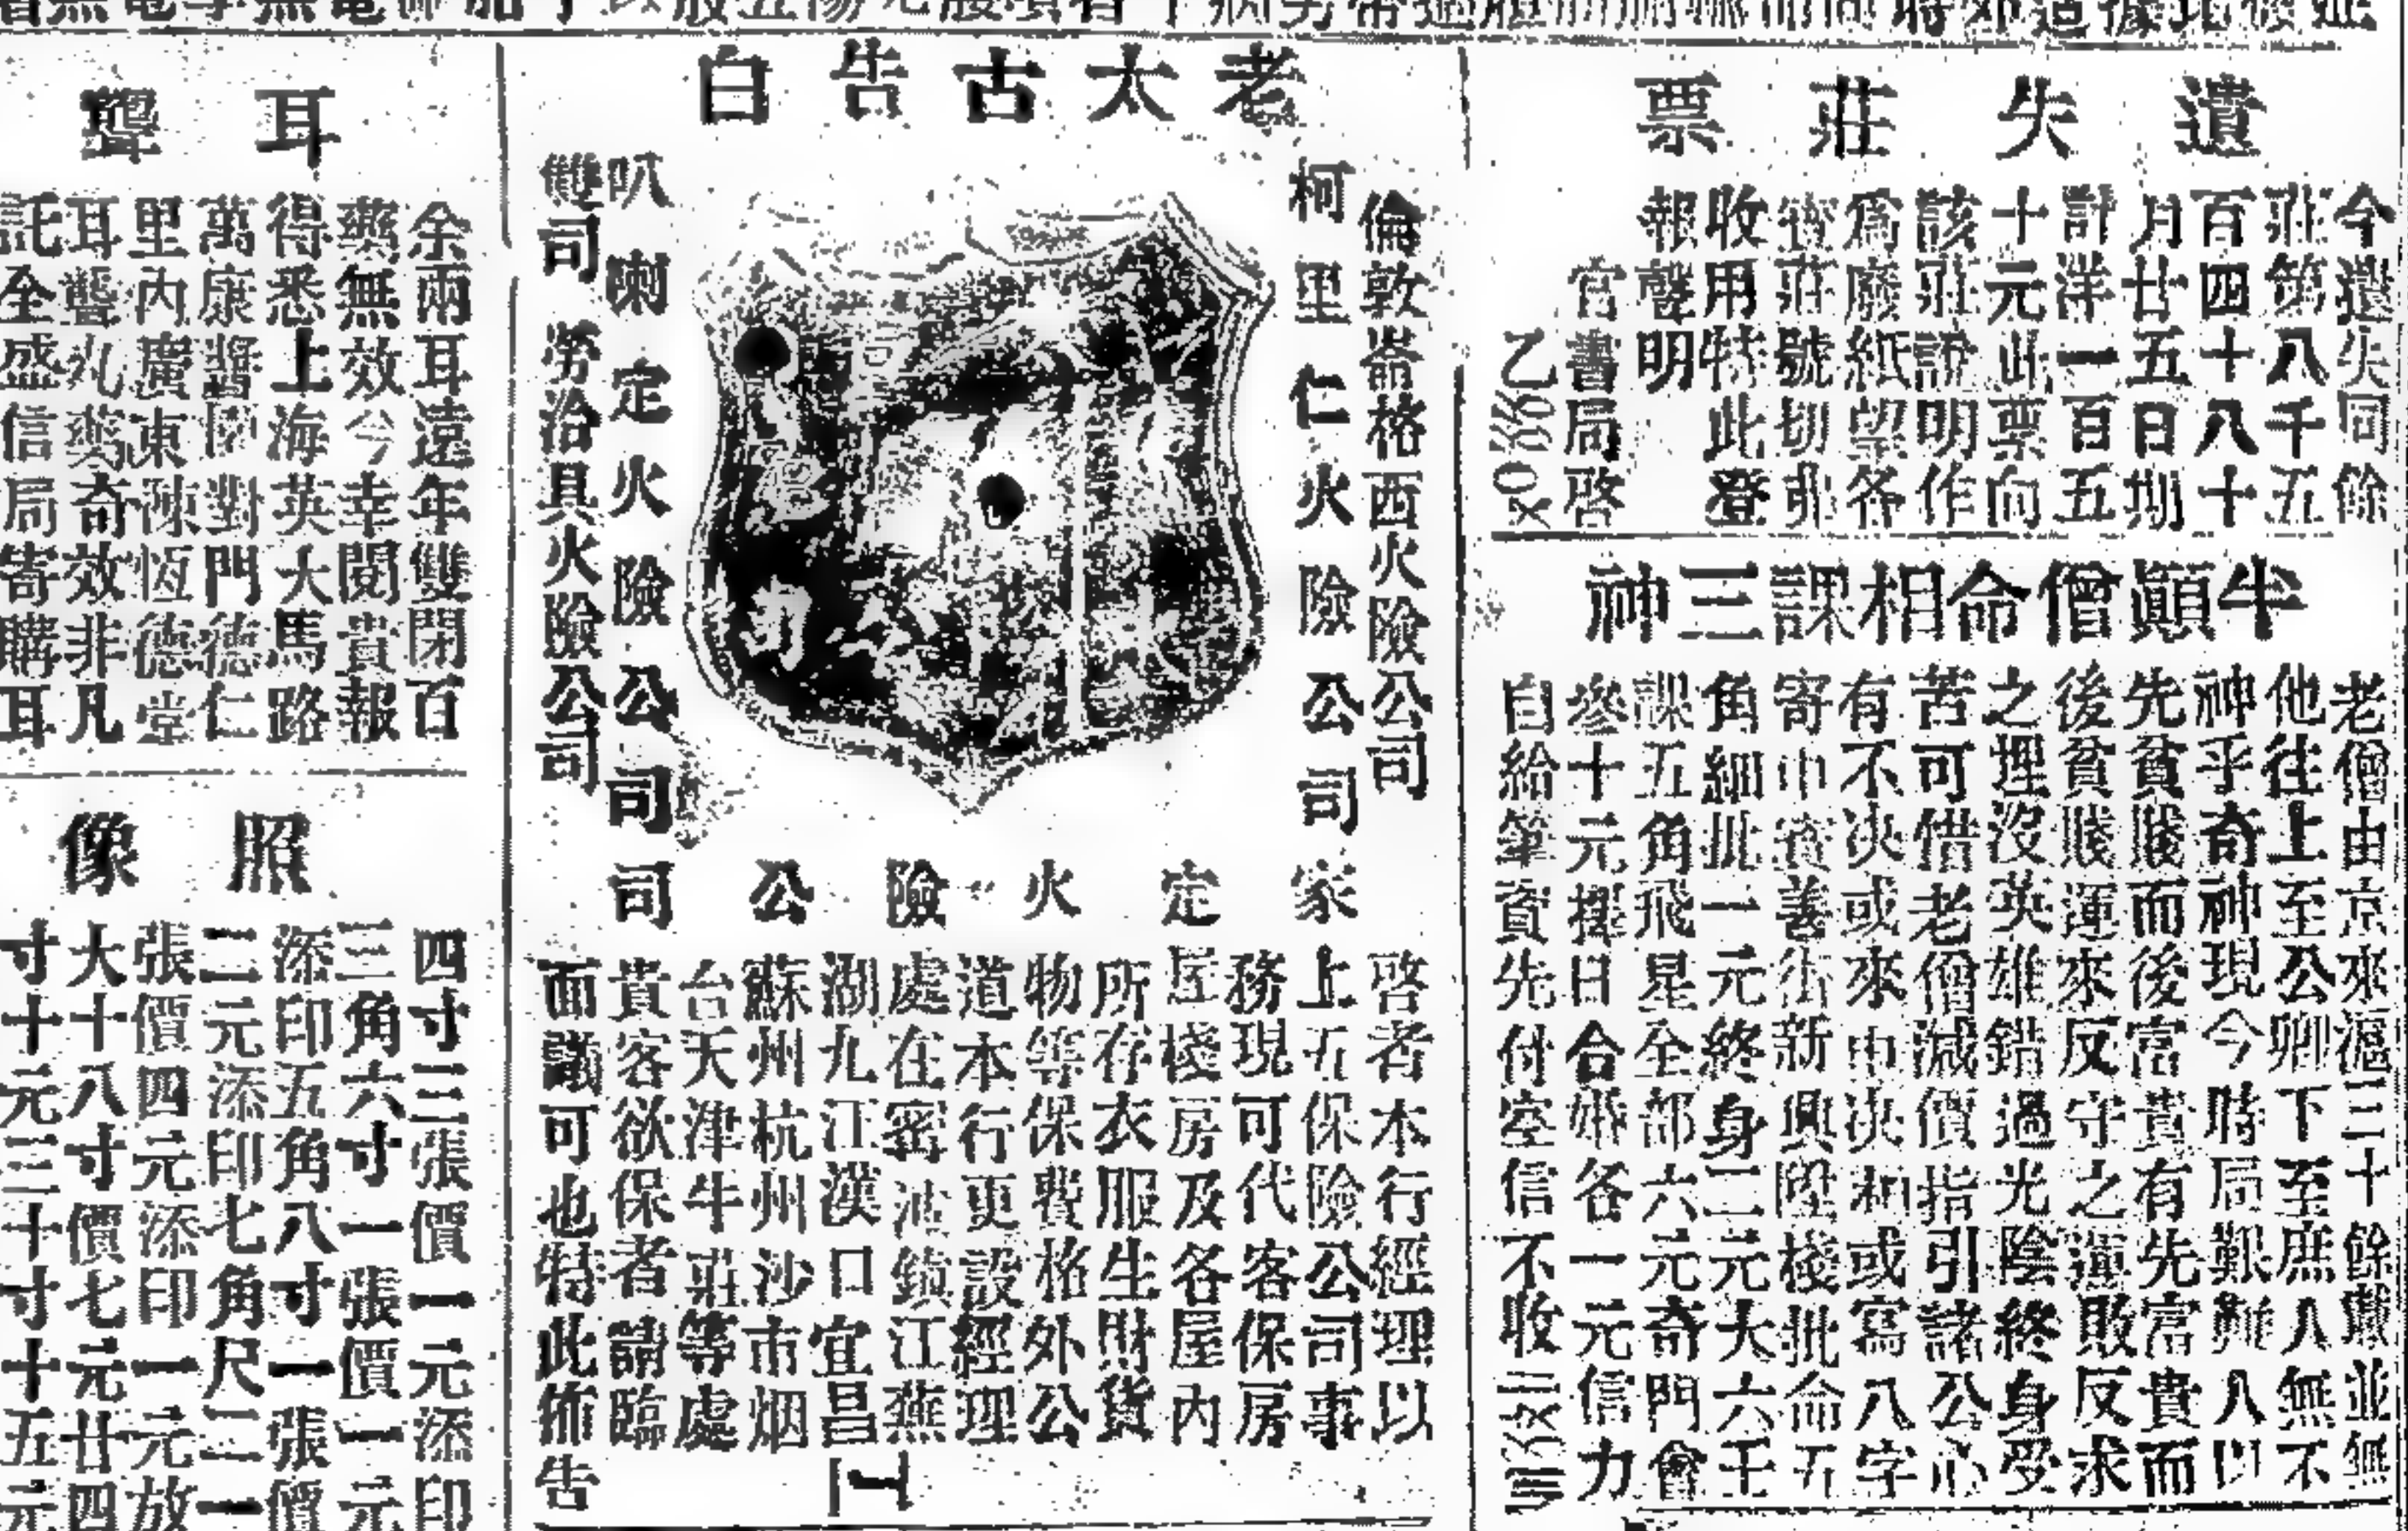 遺失莊票
今遺失同餘
莊第八千五
百四十八十
月廿五日期
計洋一百五
十元此票向
該莊說明作
爲廢紙望各
寶莊號切弗
收用特此登
報聲明
官書局啓
半顚僧命相課三神
老僧由京來滬三十餘載並無
他往上至公卿下至庶人無不
神乎奇神現今時局艱難人以
先貧賤而後富貴有先富貴而
後貧賤運來反守之運敗反求
之埋沒英雄錯過光陰終身受
苦可惜老僧減價指引諸公心
有不决或來申决相或寫八字
寄申寶善街新興陞棧批命五
角細批一元終身二元大六壬
課五角飛星全部六元奇門會
參十元擇日合婚各一元信力
自給筆資先付空信不收
老太古告白
倫敦崙格西火險公司
柯里仁火險公司
叭喇定火險公司
雙司勞洽具火險公司
家定火險公司
啓者本行經理以
上五保險公司事
務現可代客保房
屋棧房及各屋內
所存衣服生財貨
物等保費格外公
道本行更設經理
處在寗波鎮江蕪
湖九江漢口宜昌
蘇州杭州沙市烟
台天津牛莊等處
貴客欲保者請臨
面議可也特此佈
告
耳聾
余兩耳遠年雙閉百
藥無效今幸閱貴報
得悉上海英大馬路
萬康醬園對門德仁
里內廣東陳恆德堂
耳聾丸藥奇效非凡
託全盛信局寄購耳
照像
四寸三張價一元添印
三角六寸一張價一元
添印五角八寸一張價
二元添印七角尺二一
張價四元添印一元放
大十八寸價七元廿四
寸十元三十寸十五元